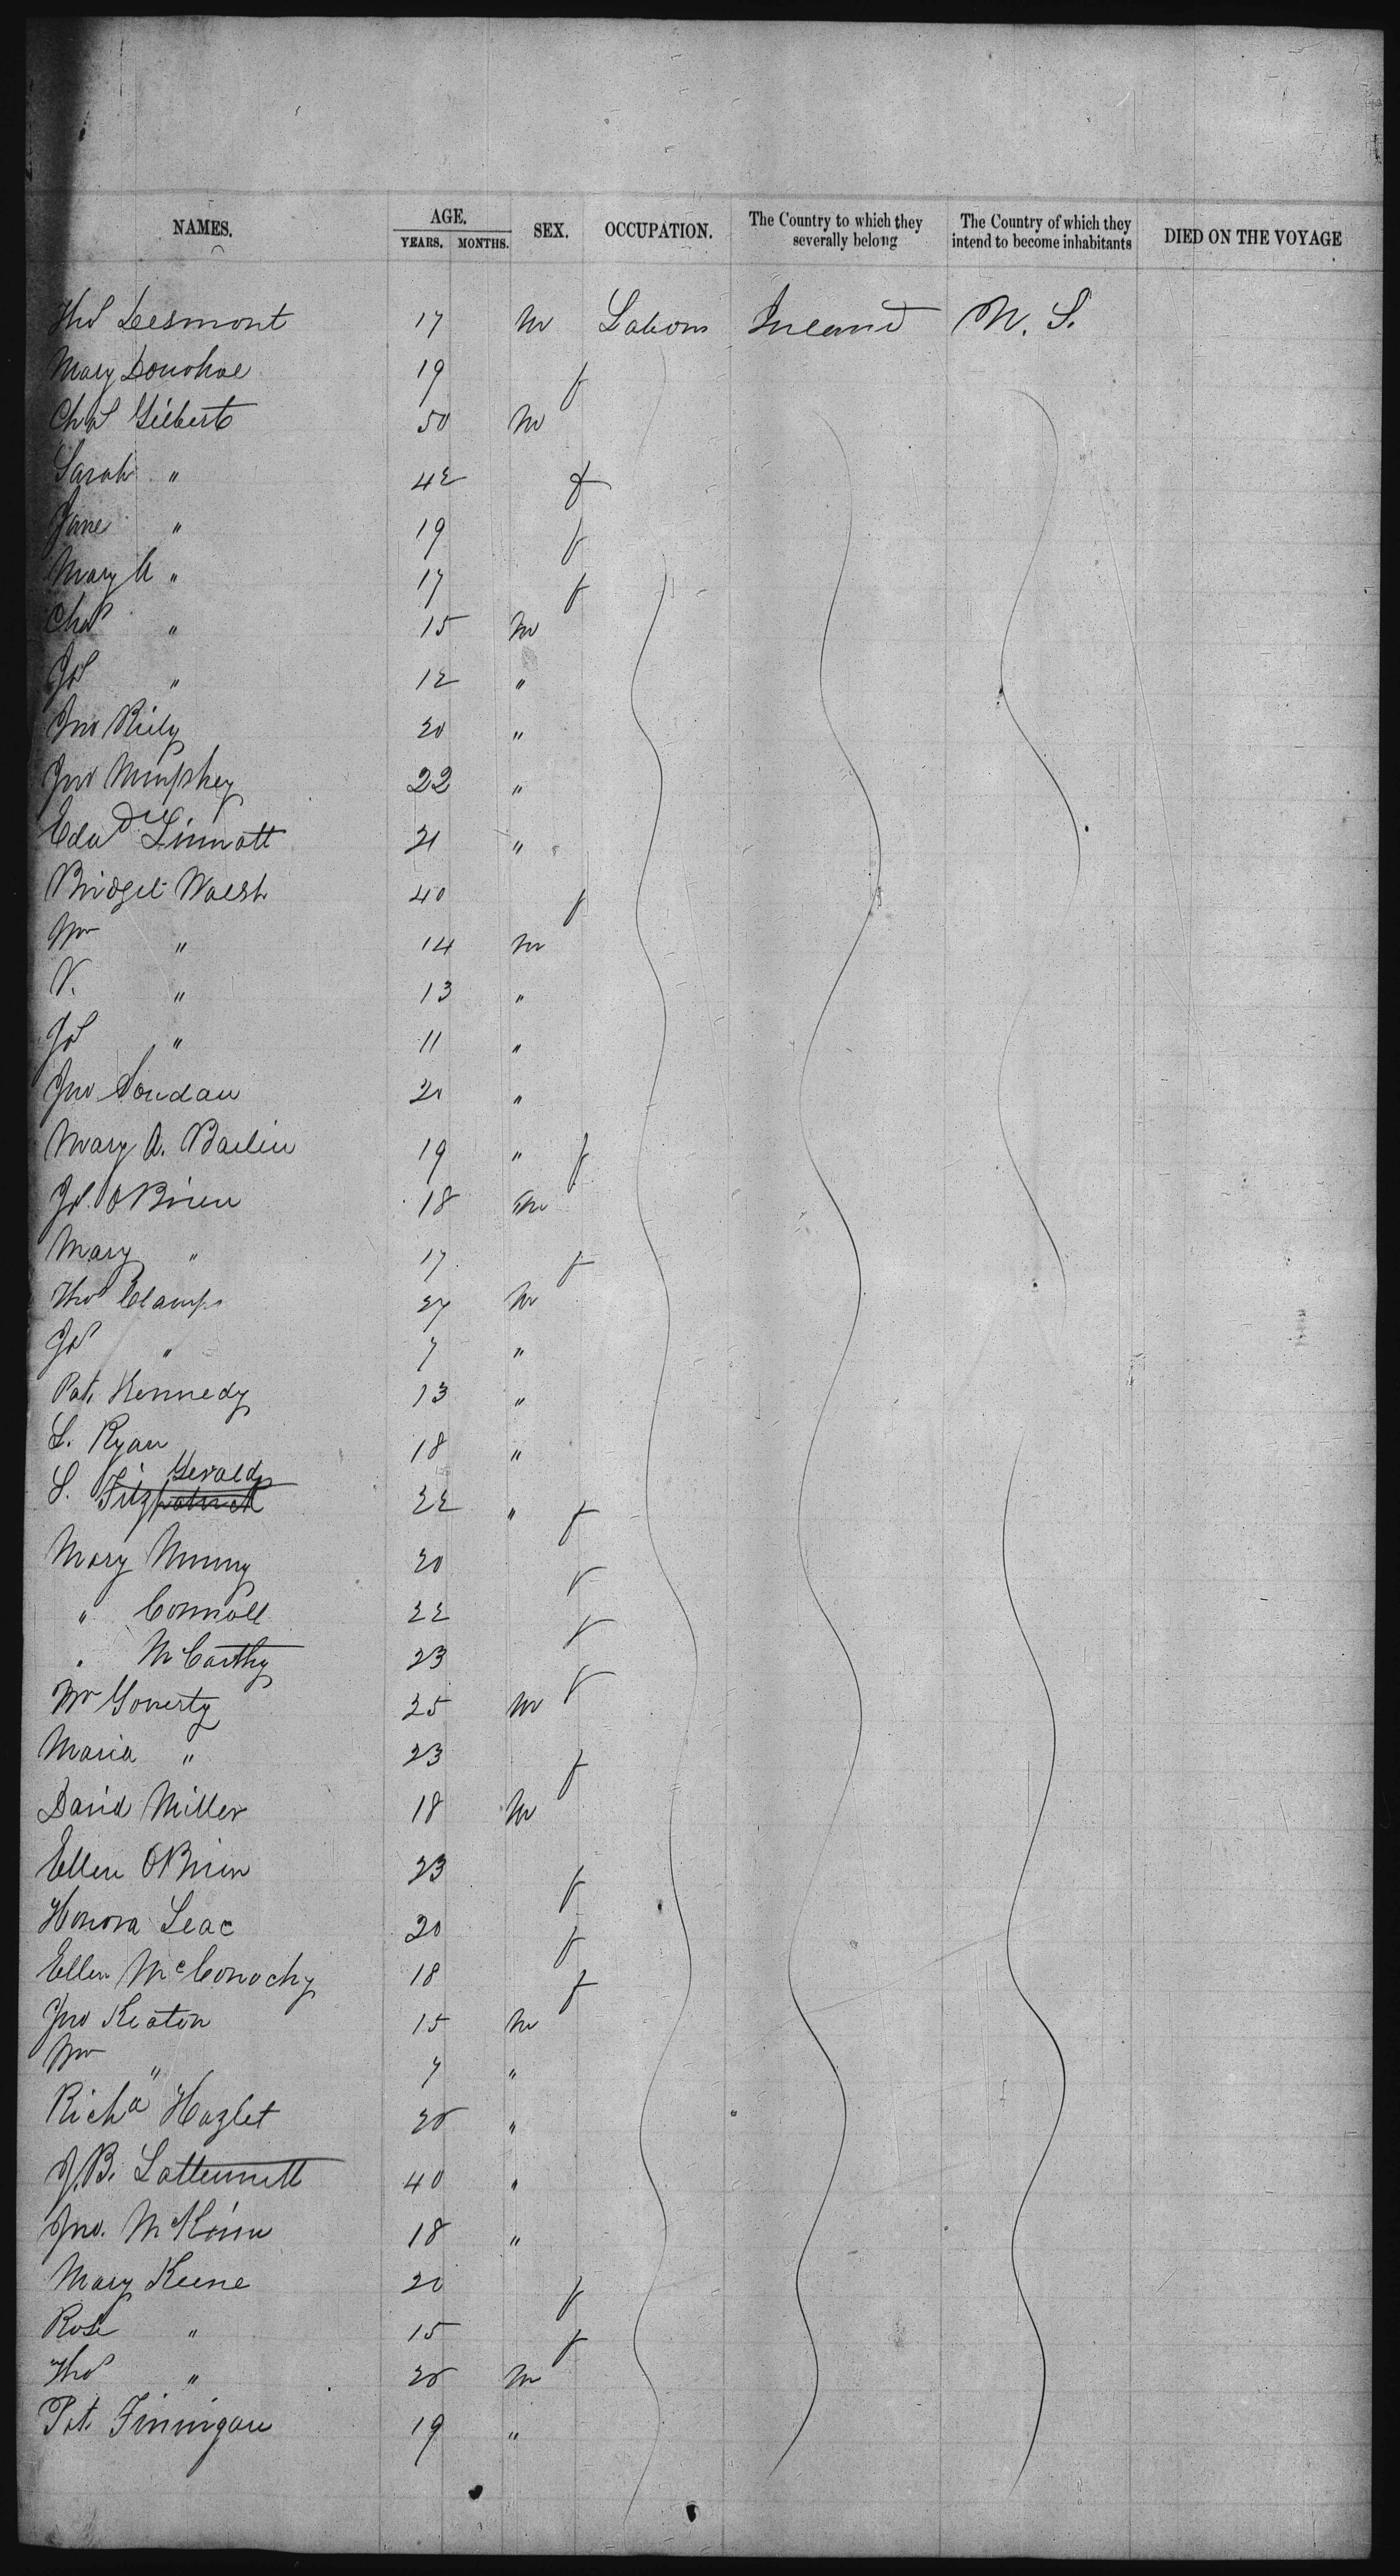 NAMES. AGE. YEARS. MONTHS. SEX. OCCUPATION. The Country to which they severally belong The Country of which they intend to become inhabitants DIED ON THE VOYAGE
Thos Desmont 17 m Labour Ireland U. S.
Mary Donohoe 19 f
Chas Gilbert 50 m
Sarah " 42 f
Jane " 19 f
Mary A " 17 f
Chas " 15 m
Jos " 12 "
Jno Riely 20 "
Jno Murphey 22 "
Edwd Linnott 21 "
Bridget Walsh 40 f
Wm " 14 m
V. " 13 "
Jos " 11 "
Jno 20 "
Mary A. 19 " f
Js. OBrien 18 m
Mary " 17 f
Thos Clamps 27 m
Jos " 7 "
Pat. Kennedy 13 "
L. Ryan 18 "
S. Fitzpatrick Gerald 22 " f
Mary 20 f
" Connoll 22 f
" McCarthy 23 f
Wm Goverty 25 m
Maria " 23 f
David Miller 18 m
Ellen OBrien 23 f
Honora Leac 20 f
Ellen McConochy 18 f
Jno Keaton 15 m
Wm " 7 "
Richd Hazlet 20 "
J. B. 40 "
Jno. 18 "
Mary Keene 20 f
Rose " 15 f
Thos " 20 m
Pat. Finnigan 19 "